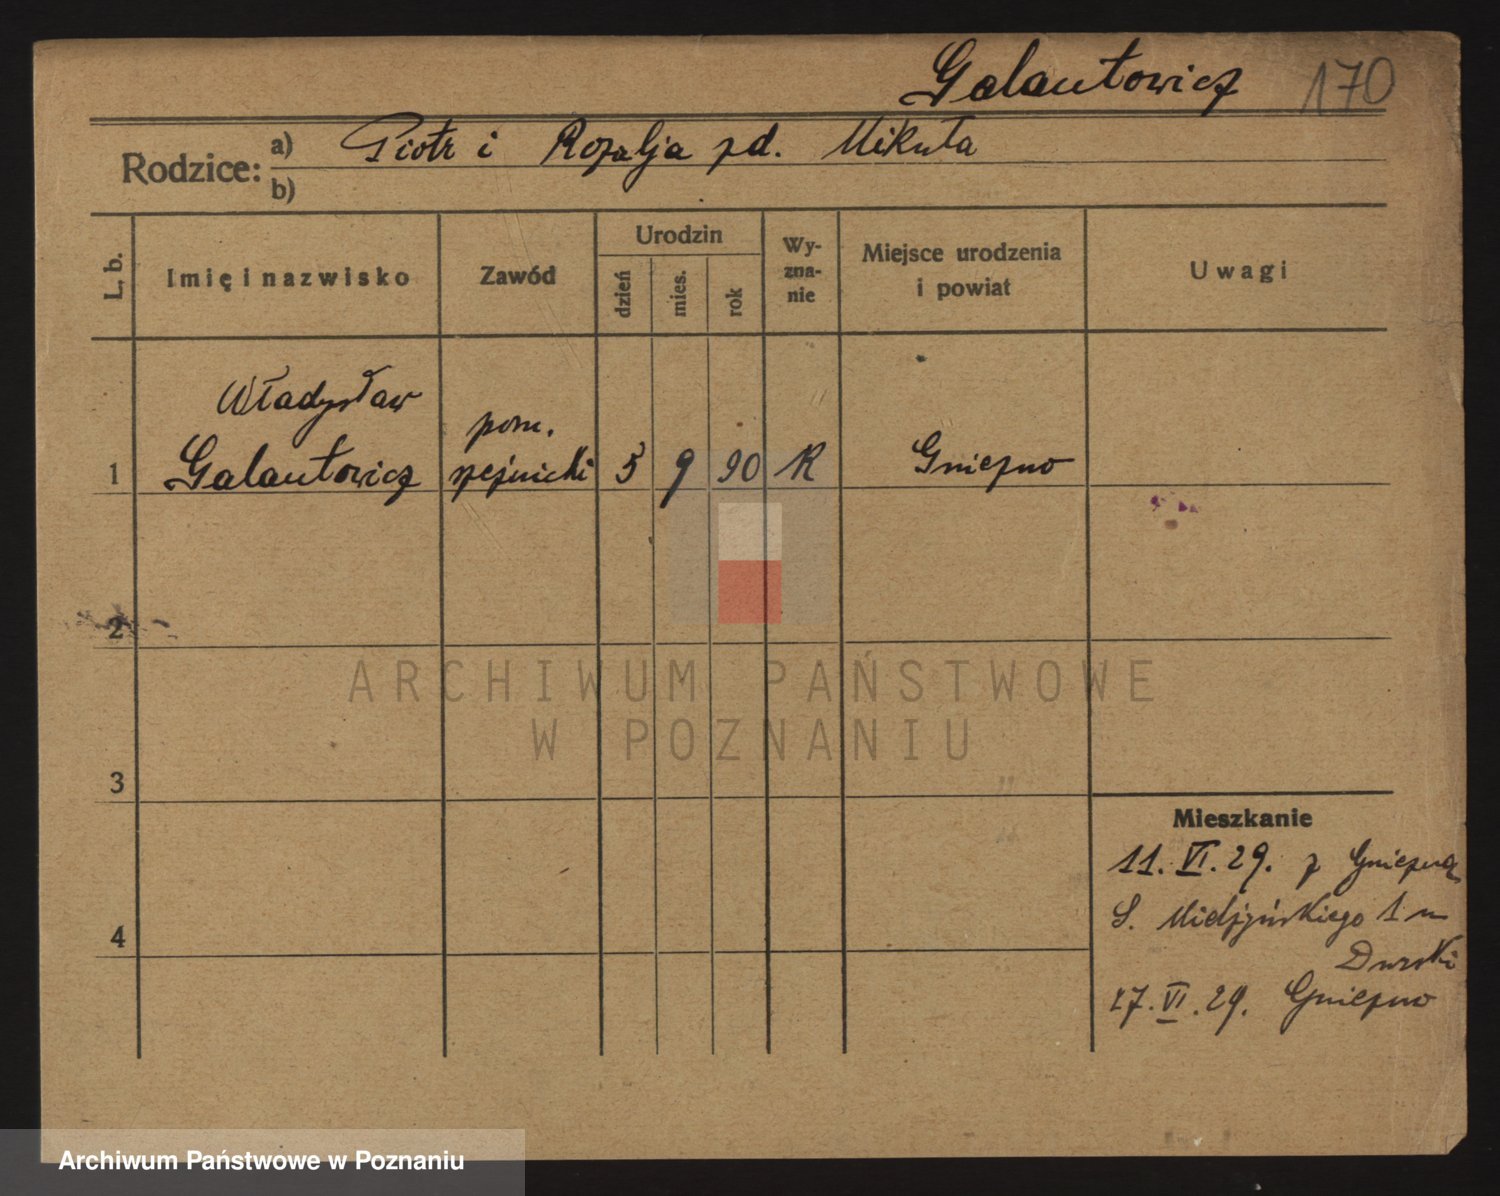 Galantowicz 170
Rodzice: a) Piotr i Rozalja zd. Mikuła
b)
L. b.
Imię i nazwisko
Zawód
Urodzin
dzień
mies.
rok
Wy-
zna-
nie
Miejsce urodzenia
i powiat
Uwagi
Władysław
pom.
1 Galantowicz rzeźnicki 5 9 90 R Gniezno
2
ARCHIWUM PAŃSTWOWE
W POZNANIU
3
Mieszkanie
11. VI. 29. z Gniezna
S. Mielżyńskiego 1 u
4
Durski
27. VI. 29. Gniezno
Archiwum Państwowe w Poznaniu